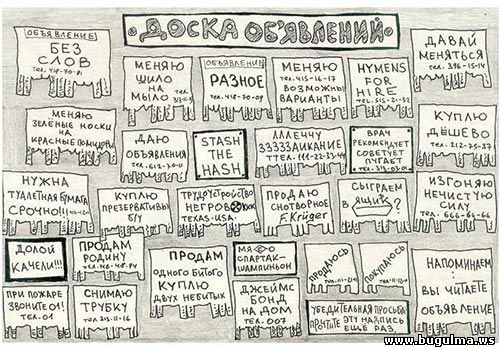 ДОСКА ОБЪЯВЛЕНИЙ
ОБЪЯВЛЕНИЕ
БЕЗ
СЛОВ
МЕНЯЮ
ШИЛО
НА
МЫЛО
ОБЪЯВЛЕНИЕ
РАЗНОЕ
МЕНЯЮ
ТЕЛ. 415-16-17
ВОЗМОЖНЫ
ВАРИАНТЫ
HYMENS
FOR
HIRE
ДАВАЙ
МЕНЯТЬСЯ
ТЕЛ. 396-15-14
МЕНЯЮ
ЗЕЛЁНЫЕ НОСКИ
НА
КРАСНЫЕ ПОМИДОРЫ
ДАЮ
ОБЪЯВЛЕНИЯ
STASH
THE
HASH
ЛЛЛЕЧЧУ
ЗЗЗЗЗАИКАНИЕ
ТТЕЛ. 111-22-33-44
ВРАЧ
РЕКОМЕНДУЕТ
СОВЕТУЕТ
ПУГАЕТ
КУПЛЮ
ДЁШЕВО
ТЕЛ. 212-75-37
НУЖНА
ТУАЛЕТНАЯ БУМАГА
СРОЧНО!!!
КУПЛЮ
ПРЕЗЕРВАТИВЫ
Б/У
ТРУДОУСТРОЙСТВО
НЕГРОВ
TEXAS. USA.
ПРОДАЮ
СНОТВОРНОЕ
F. Krüger
СЫГРАЕМ
В ЯЩИК?
ИЗГОНЯЮ
НЕЧИСТУЮ
СИЛУ
ТЕЛ. 666-66-66
ДОЛОЙ
КАЧЕЛИ!!!
ПРОДАМ
РОДИНУ
ПРОДАМ
ОДНОГО БИТОГО
КУПЛЮ
ДВУХ НЕБИТЫХ
СПАРТАК-
ШАМПИНЬОН
ПРОДАЮСЬ
ПОКУПАЮСЬ
НАПОМИНАЕМ
ВЫ ЧИТАЕТЕ
ОБЪЯВЛЕНИЕ
ПРИ ПОЖАРЕ
ЗВОНИТЕ 01
ТЕЛ. 01
СНИМАЮ
ТРУБКУ
ДЖЕЙМС
БОНД
НА ДОМ
ТЕЛ. 007
УБЕДИТЕЛЬНАЯ ПРОСЬБА
ПРОЧТИТЕ ЭТУ НАДПИСЬ
ЕЩЁ РАЗ.
www.bugulma.ws